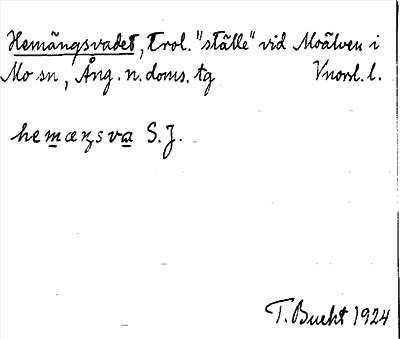 Hemängsvadet, trol. "ställe" vid Moälven i
Mo sn, Ång. n. doms. tg Vnorrl. l.
hemæŋsva S. J.
T. Bucht 1924